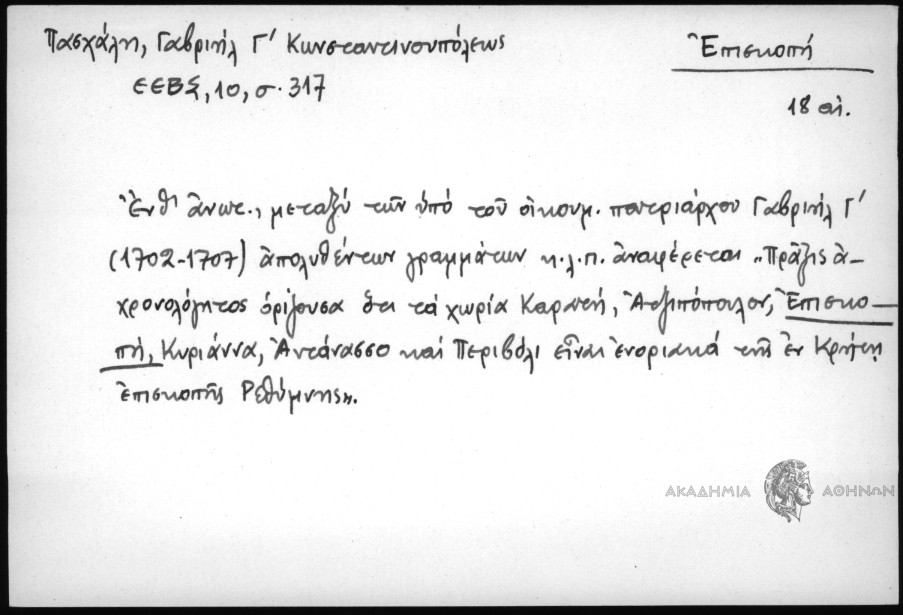 Πασχάλη, Γαβριήλ Γ' Κωνσταντινουπόλεως
Ἐπισκοπή
ΕΕΒΣ, 10, σ. 317
18 αἰ.
Ἐνθ' ἀνωτ., μεταξύ τῶν ὑπό τοῦ οἰκουμ. πατριάρχου Γαβριήλ Γ'
(1702-1707) ἀπολυθέντων γραμμάτων κ.λ.π. ἀναφέρεται „Πρᾶξις ἀ-
χρονολόγητος ὁρίζουσα ὅτι τά χωρία Καρωτή, Ἀτζιπόπουλον, Ἐπισκο-
πή, Κυριάννα, Ἀντάνασσο καί Περιβόλι εἶναι ἐνοριακά τῆς ἐν Κρήτῃ
ἐπισκοπῆς Ρεθύμνης".
ΑΚΑΔΗΜΙΑ ΑΘΗΝΩΝ